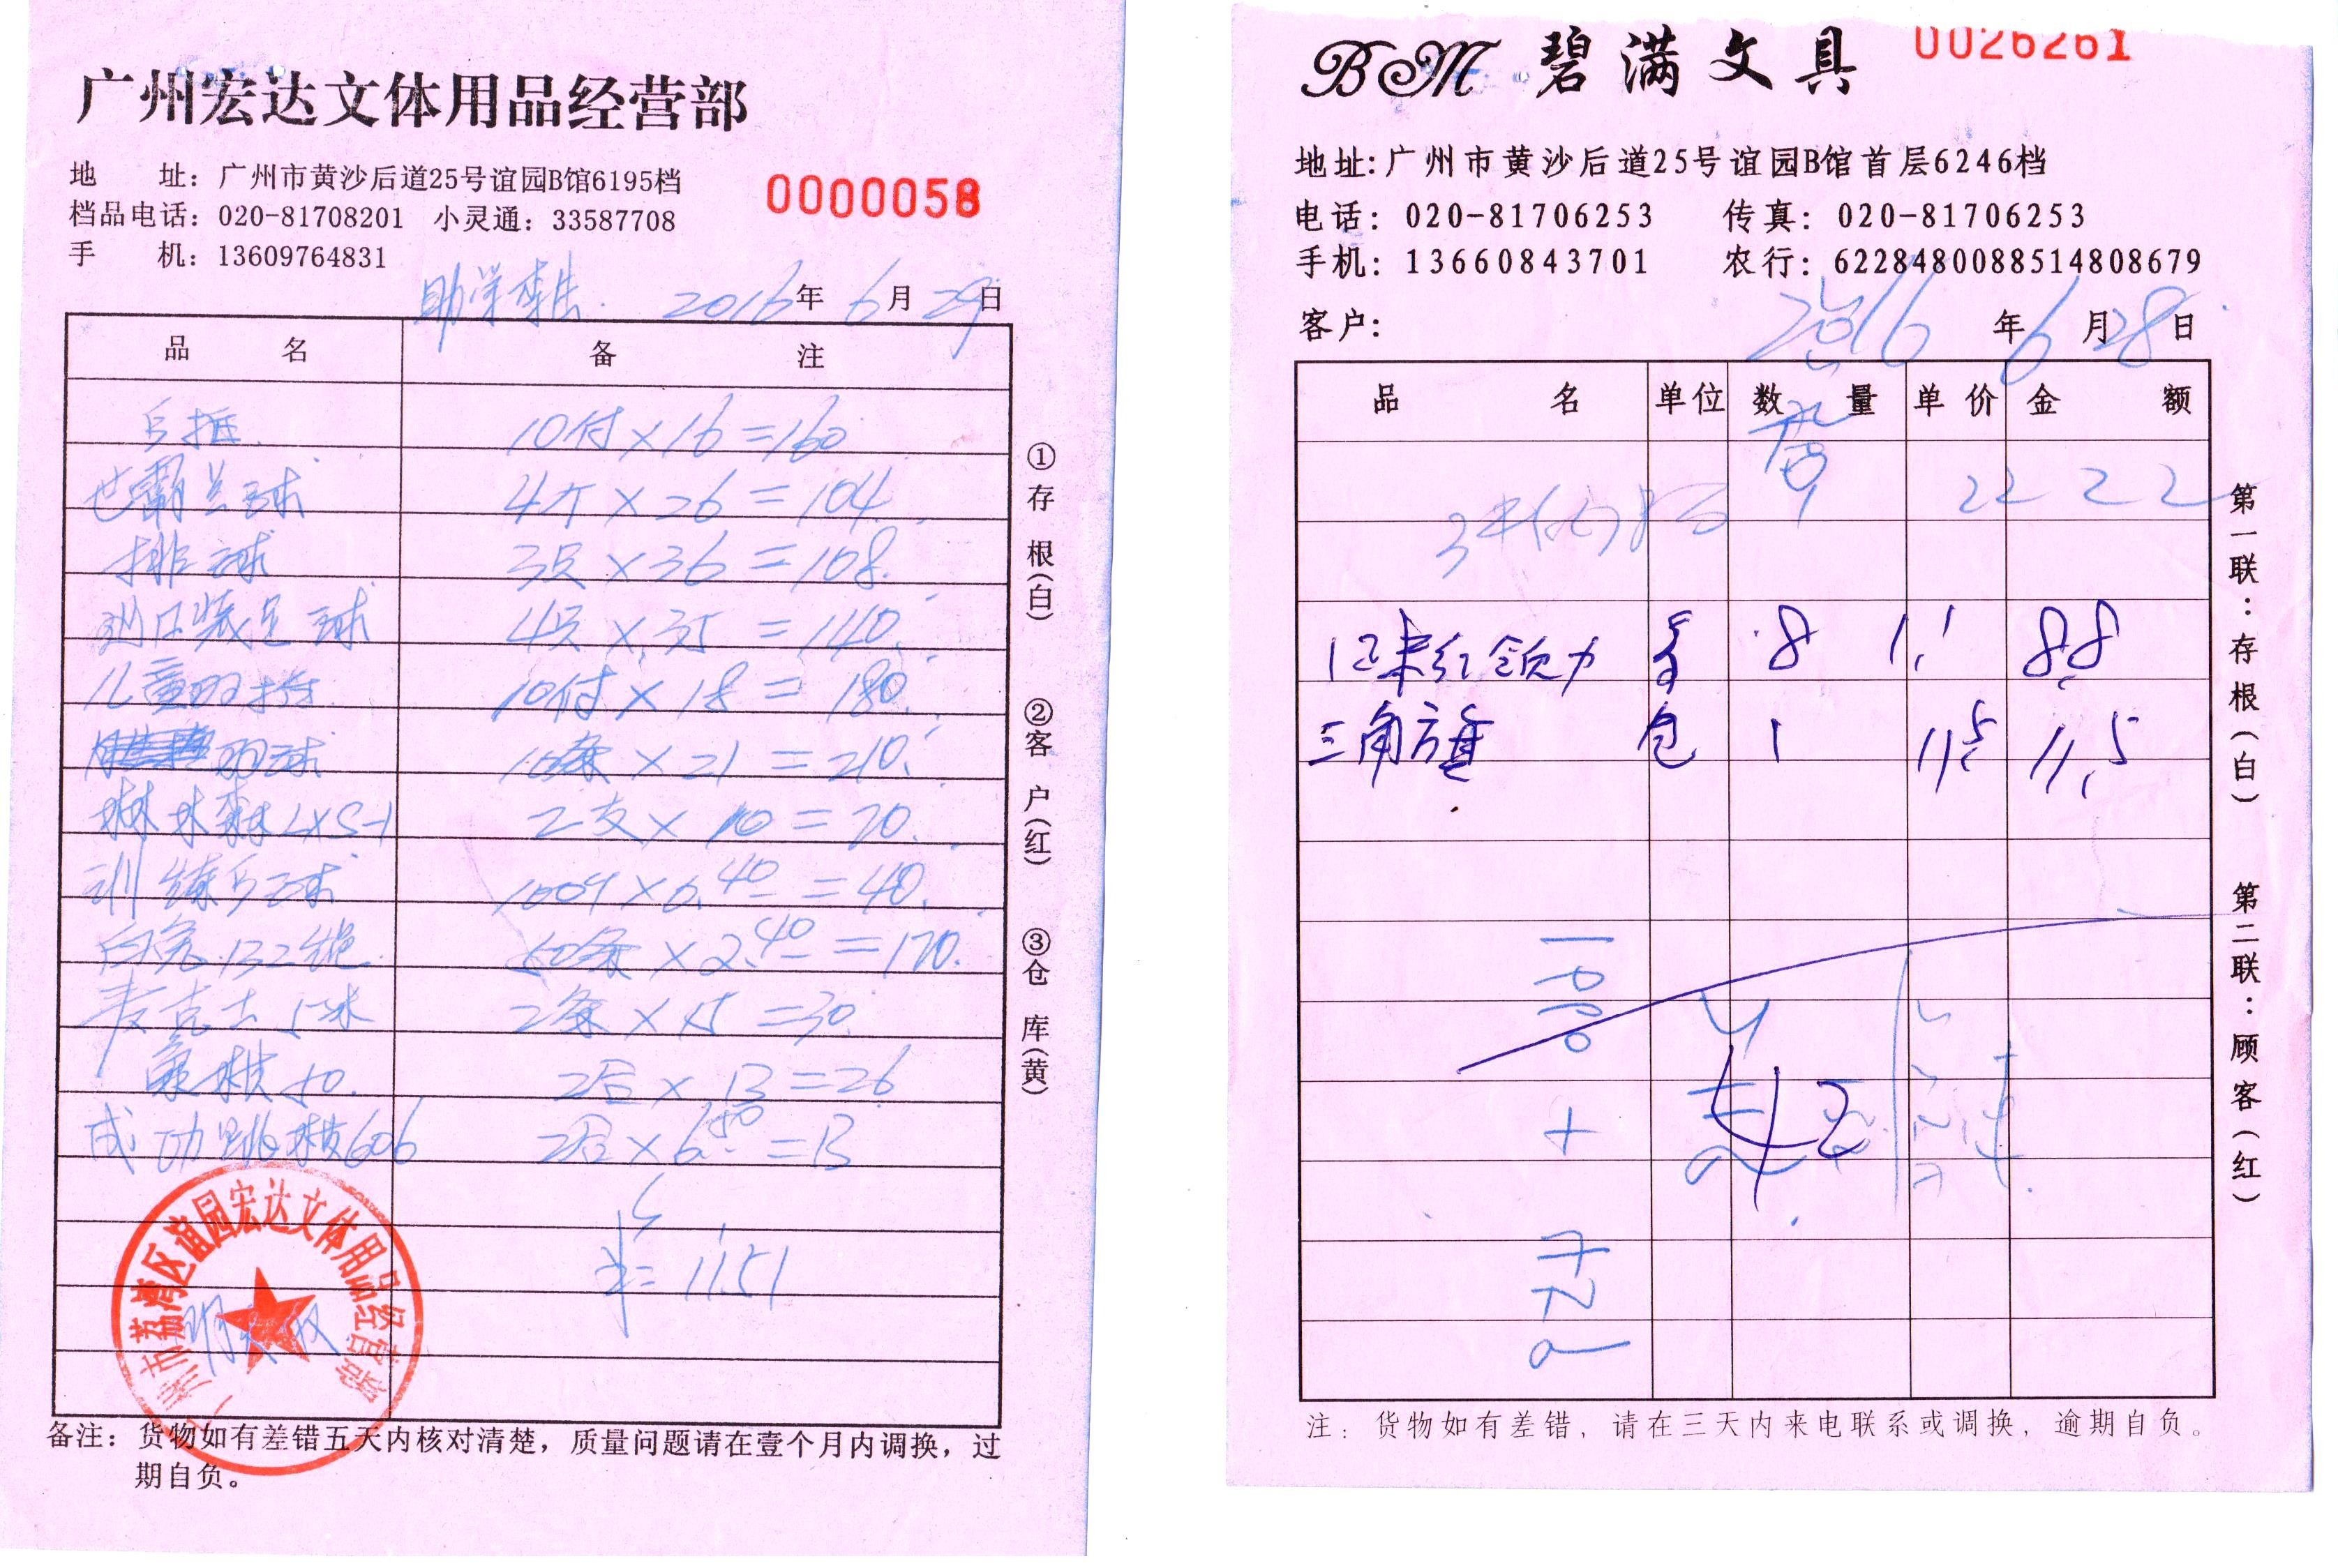 广州宏达文体用品经营部
地 址：广州市黄沙后道25号谊园B馆6195档
档品电话：020-81708201 小灵通：33587708
手 机：13609764831
0000058
助学 2016年6月29日
品 名 备 注
乒拍 10付×16=160
世霸兰球 4个×26=104
排球 3只×36=108
进口装足球 4只×35=140
儿童羽拍 10付×18=180
羽球 10条×21=210
2支×10=20
训练乒球 100个×0.40=40
白兔132绳 50条×2.40=120
麦克士5米 2条×15=30
象棋50 2合×13=26
成功跳棋606 2合×6.50=13
1151
①存根(白) ②客户(红) ③仓库(黄)
广州市荔湾区谊园宏达文体用品经营部
备注：货物如有差错五天内核对清楚，质量问题请在壹个月内调换，过
期自负。
BM 碧满文具
0026261
地址：广州市黄沙后道25号谊园B馆首层6246档
电话：020-81706253 传真：020-81706253
手机：13660843701 农行：6228480088514808679
客户： 2016年6月28日
品 名 单位 数 量 单价 金 额
22 22
1.2米红领巾 条 8 1.1 8.8
三角旗 包 1 11.5 11.5
42
第一联：存根(白) 第二联：顾客(红)
注：货物如有差错，请在三天内来电联系或调换，逾期自负。